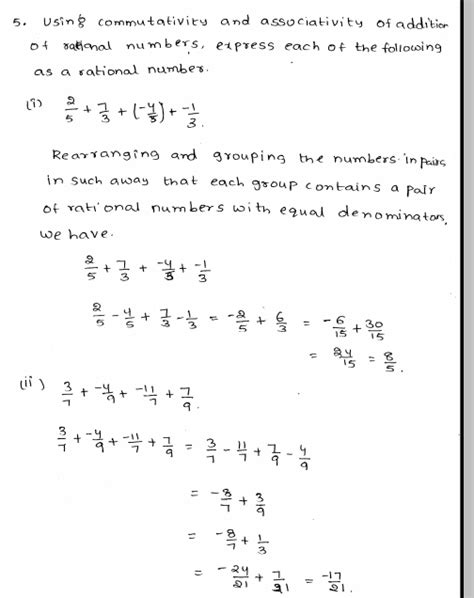 5. Using commutativity and associativity of addition
of rational numbers, express each of the following
as a rational number.
(i) 2/5 + 7/3 + (-4/5) + -1/3.
Rearranging and grouping the numbers in pairs
in such away that each group contains a pair
of rational numbers with equal denominators,
we have.
2/5 + 7/3 + -4/5 + -1/3
2/5 - 4/5 + 7/3 - 1/3 = -2/5 + 6/3 = -6/15 + 30/15
= 24/15 = 8/5.
(ii) 3/7 + -4/9 + -11/7 + 7/9.
3/7 + -4/9 + -11/7 + 7/9 = 3/7 - 11/7 + 7/9 - 4/9
= -8/7 + 3/9
= -8/7 + 1/3
= -24/21 + 7/21 = -17/21.